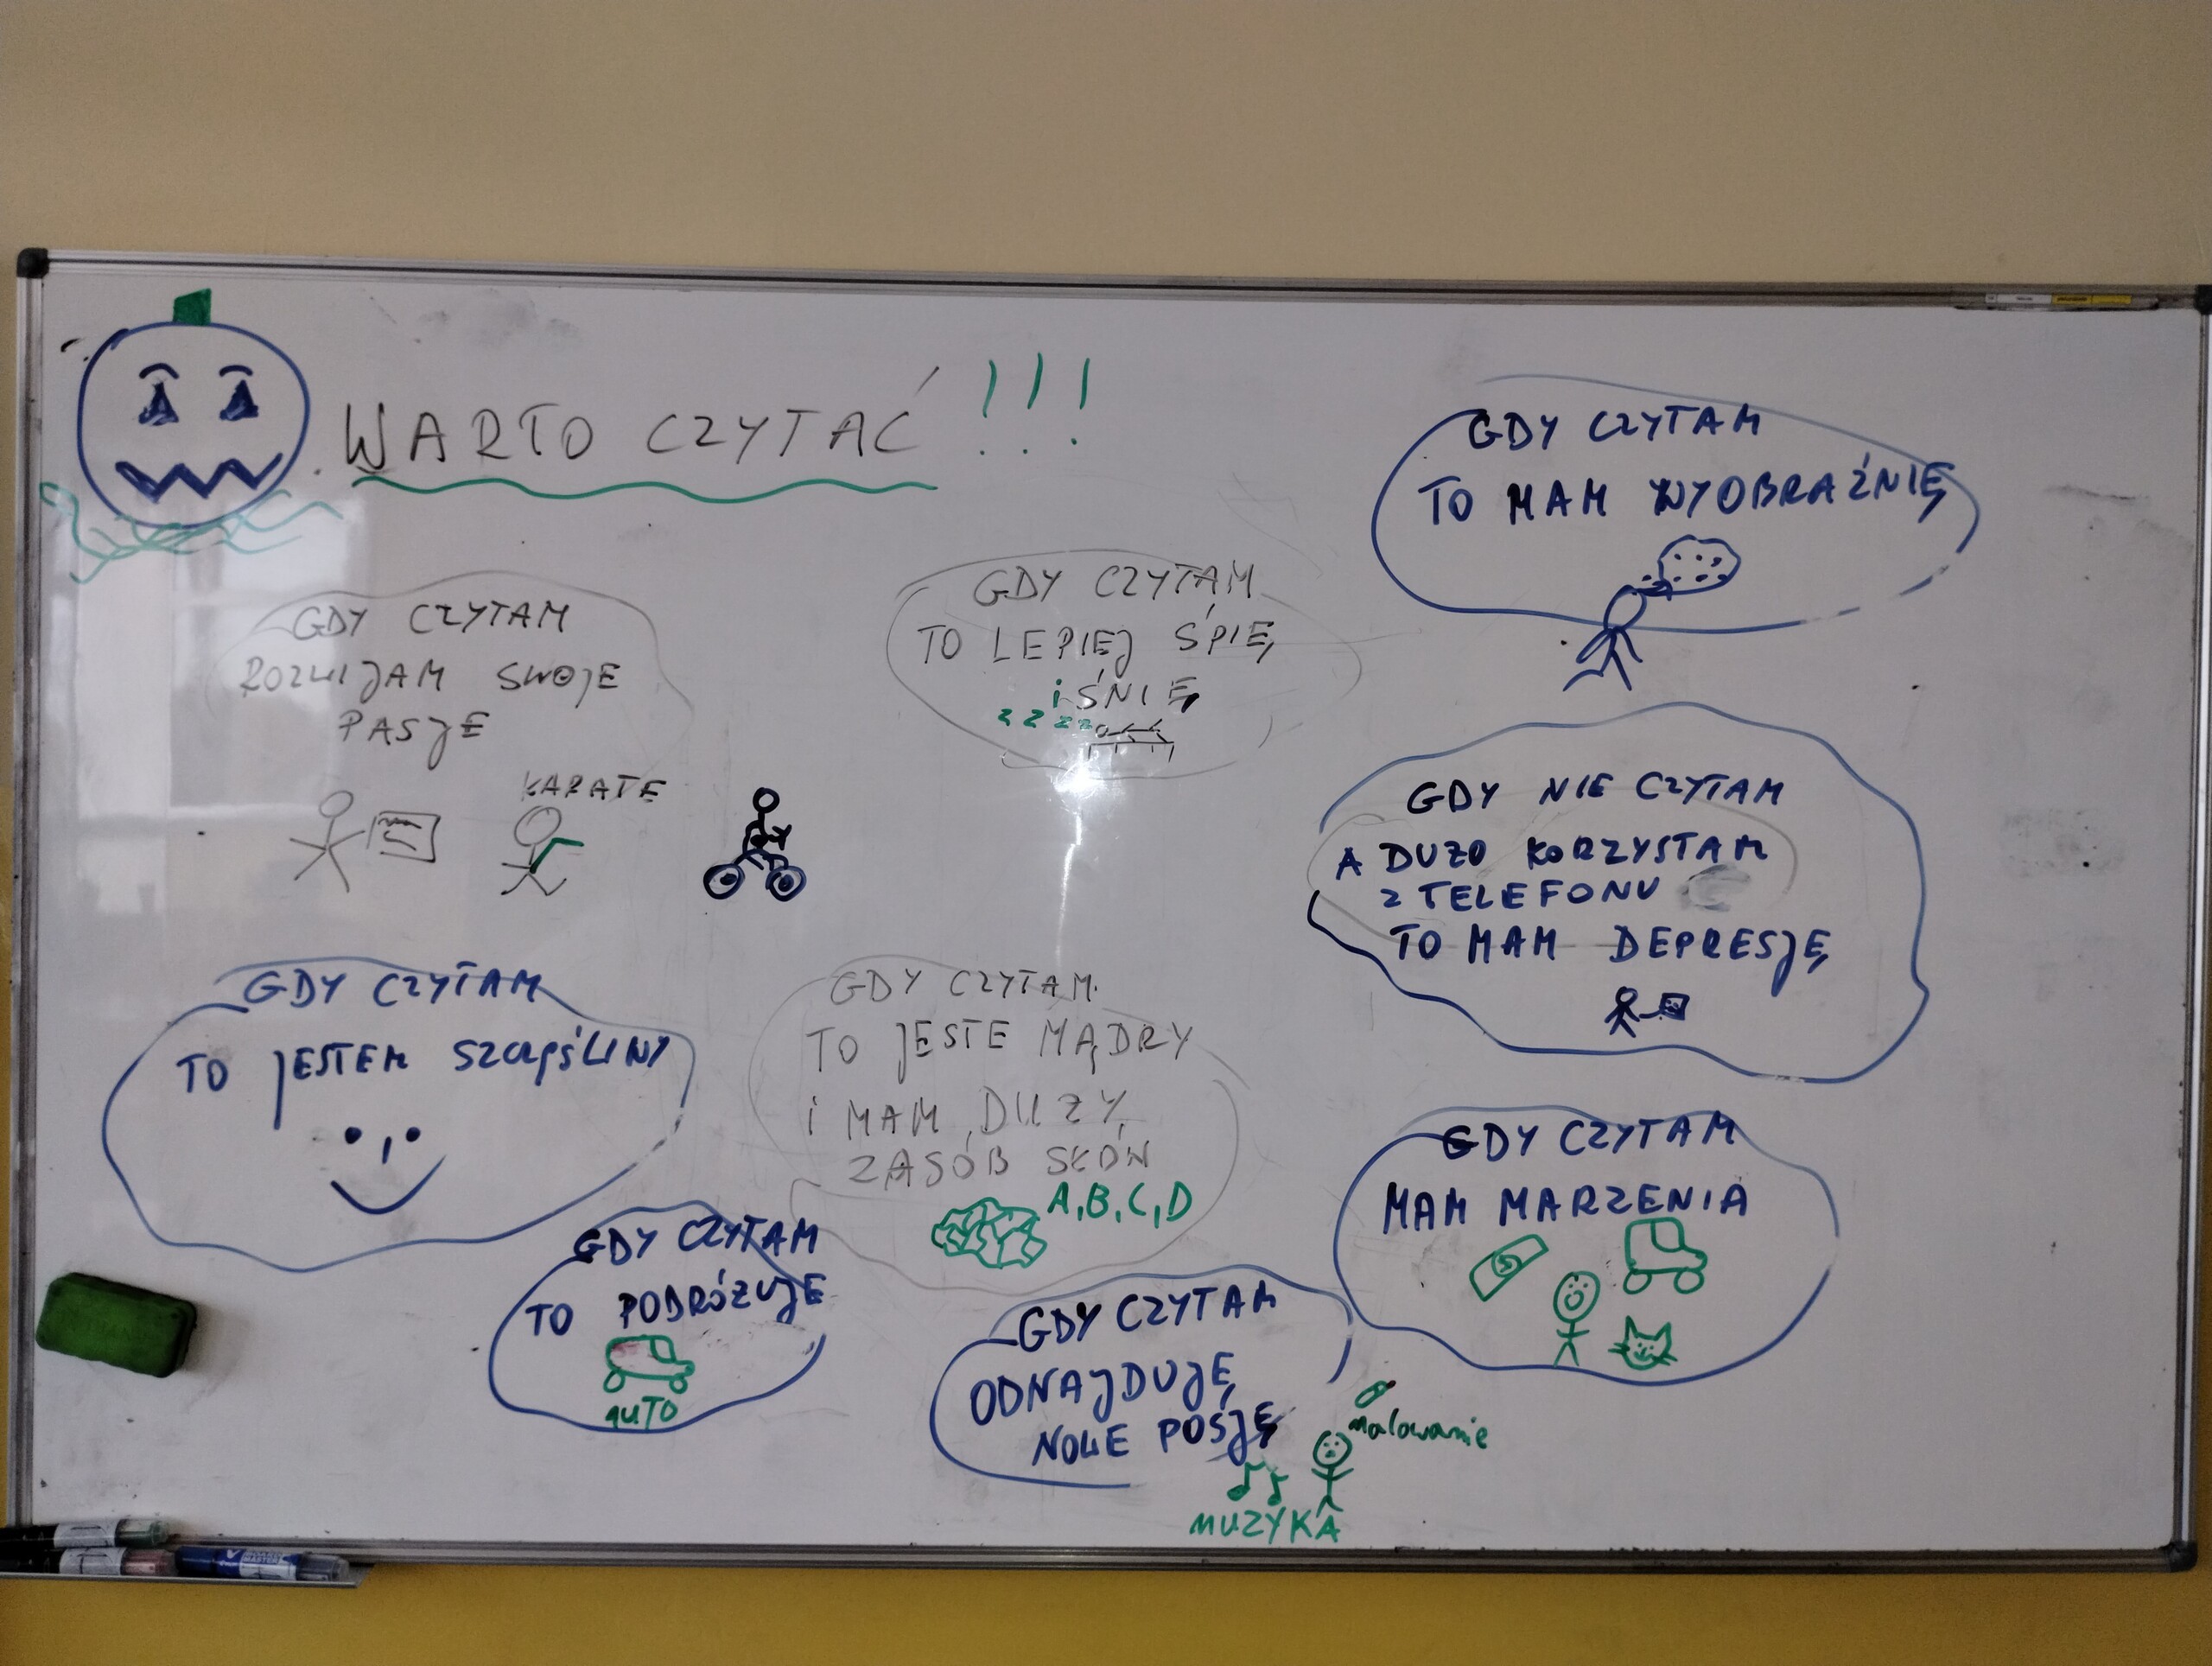 WARTO CZYTAĆ !!!
GDY CZYTAM
TO MAM WYOBRAŹNIĘ
GDY CZYTAM
ROZWIJAM SWOJE
PASJE
KARATE
GDY CZYTAM
TO LEPIEJ ŚPIĘ
i ŚNIĘ
z z z z
GDY NIE CZYTAM
A DUZO KORZYSTAM
Z TELEFONU
TO MAM DEPRESJĘ
GDY CZYTAM
TO JESTEM
GDY CZYTAM
TO JESTE MĄDRY
i MAM DUZY
ZASÓB SŁÓW
A, B, C, D
GDY CZYTAM
MAM MARZENIA
GDY CZYTAM
TO PODRÓZUJE
AUTO
GDY CZYTAM
ODNAJDUJĘ
NOWE POSJĘ
malowanie
MUZYKA